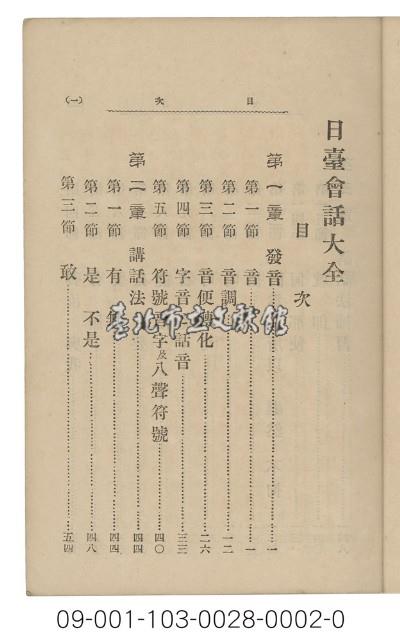 日臺會話大全
目次
第一章 發音……一
第一節 音……一
第二節 音調……一二
第三節 音便轉化……二六
第四節 字音 話音……三三
第五節 符號 字及八聲符號……四〇
第二章 講話法……四四
第一節 有 ……四四
第二節 是 不是……四八
第三節 敢……五四
目次
(一)
臺北市立文獻館
09-001-103-0028-0002-0